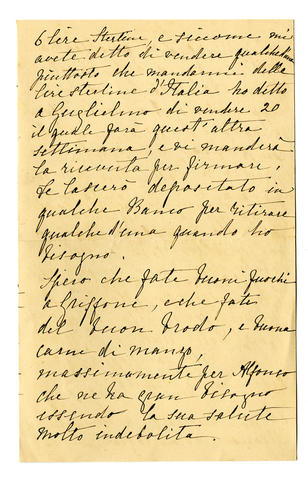 6 lire Sterline e siccome mi
avete detto di vendere qualched'una
piuttosto che mandarmi delle
lire sterline d'Italia ho detto
a Guglielmo di vendere 20
il quale farà quest'altra
settimana, e vi manderà
la ricevuta per firmare.
Le lascerò depositato in
qualche Banco per ritirare
qualche d'una quando ho
bisogno.
Spero che fate buoni fuochi
a Griffone, e che fate
del buon brodo, e buona
carne di manzo,
massimamente per Alfonso
che ne ha gran bisogno
essendo la sua salute
molto indebolita.